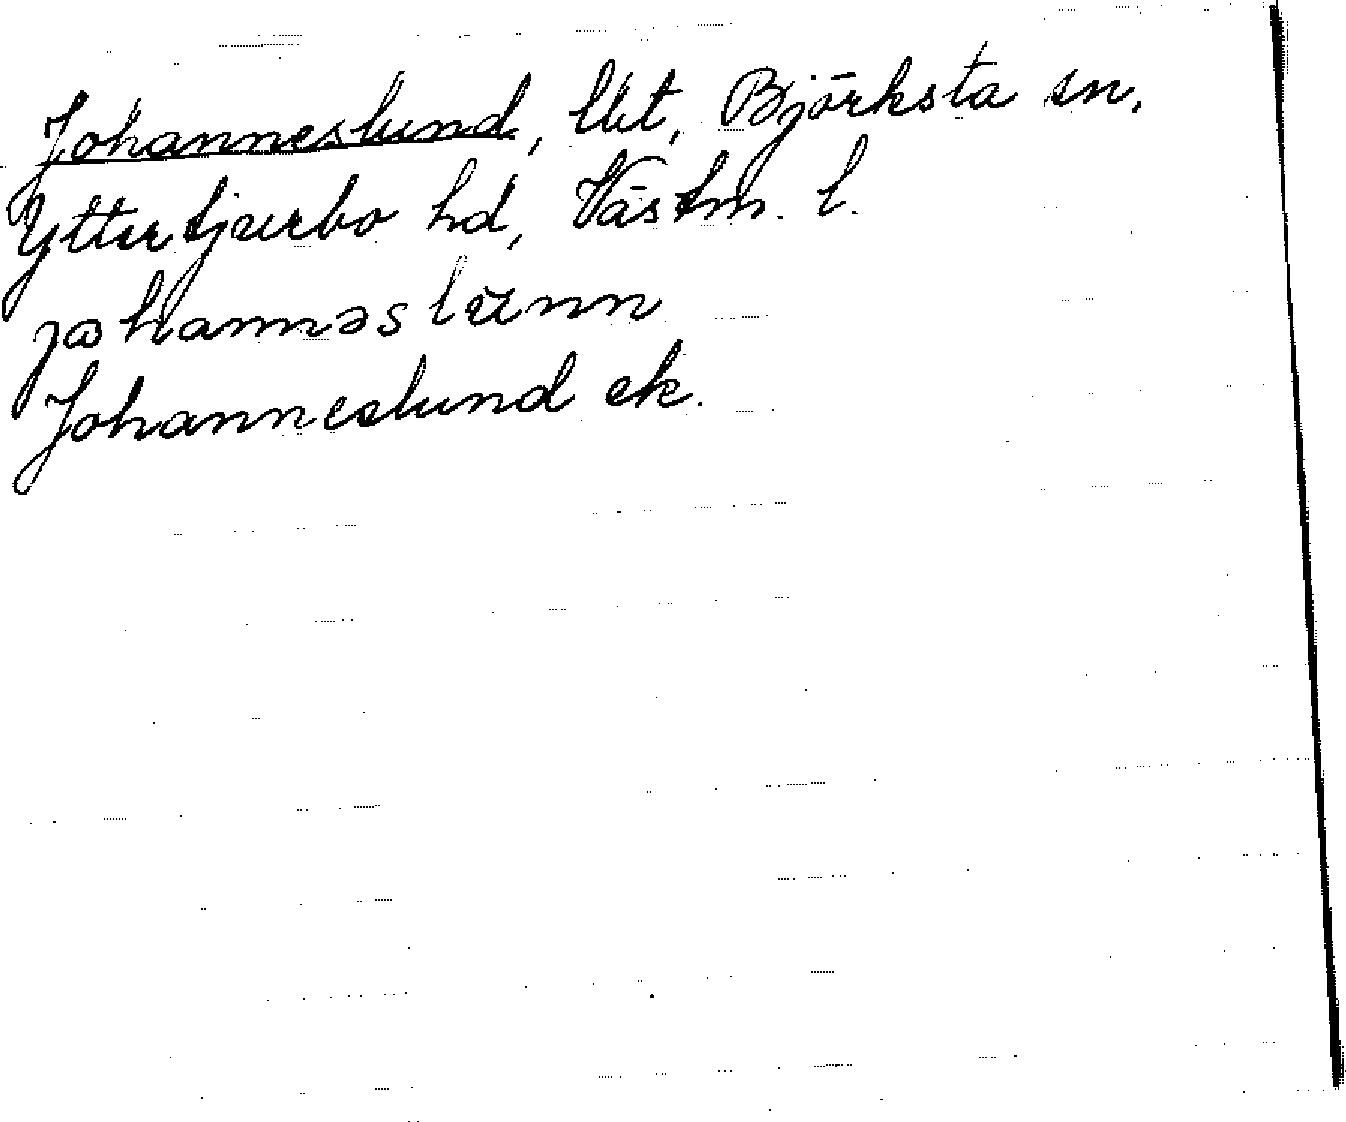 Johanneslund, lht, Björksta sn,
Yttertjurbo hd, Västm. l.
johannəslunn
Johanneslund ek.